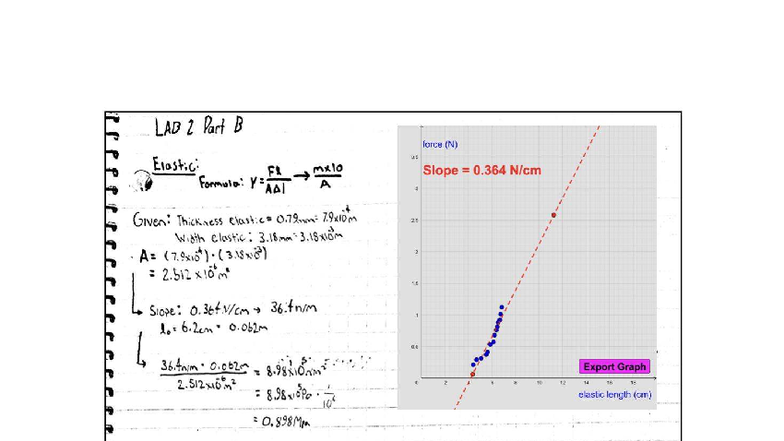 LAB 2 Part B
Elastic:
Formula: Y = Fl/AΔl → m×l0/A
Given: Thickness elastic = 0.79mm = 7.9x10^-4 m
Width elastic: 3.18mm = 3.18x10^-3 m
A = (7.9x10^-4) · (3.18x10^-3)
= 2.512 x10^-6 m²
Slope: 0.364N/cm → 36.4n/m
l₀ = 6.2cm = 0.062m
36.4n/m · 0.062m / 2.512x10^-6 m² = 8.98x10^5
= 8.98x10^5 Pa · 1/10^6
= 0.898M
force (N)
Slope = 0.364 N/cm
3.5
3
2.5
2
1.5
1
0.5
0 2 4 6 8 10 12 14 16 18
Export Graph
elastic length (cm)